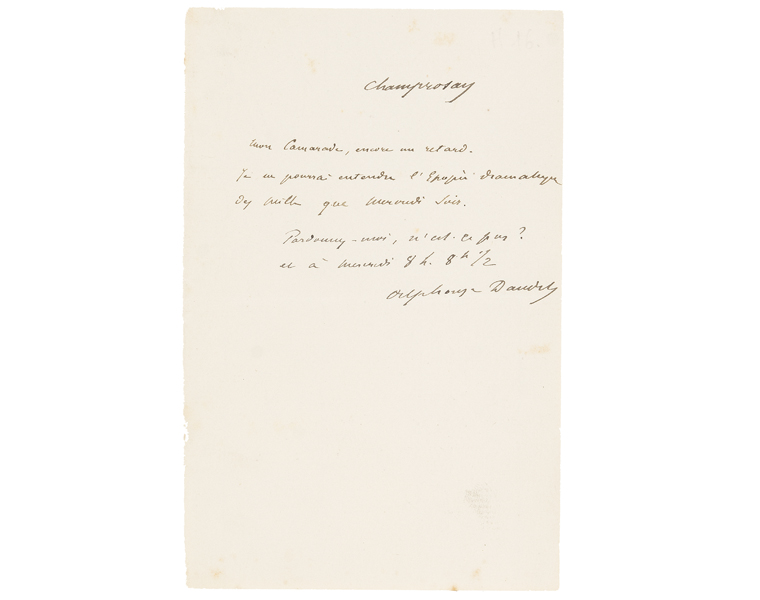 Champrosay
Mon Camarade, encore un retard.
Je ne pourrai entendre l'Epopée dramatique
des Mille que Mercredi soir.
Pardonnez-moi, n'est-ce pas ?
et à Mercredi 8 h. 8 h 1/2
Alphonse Daudet